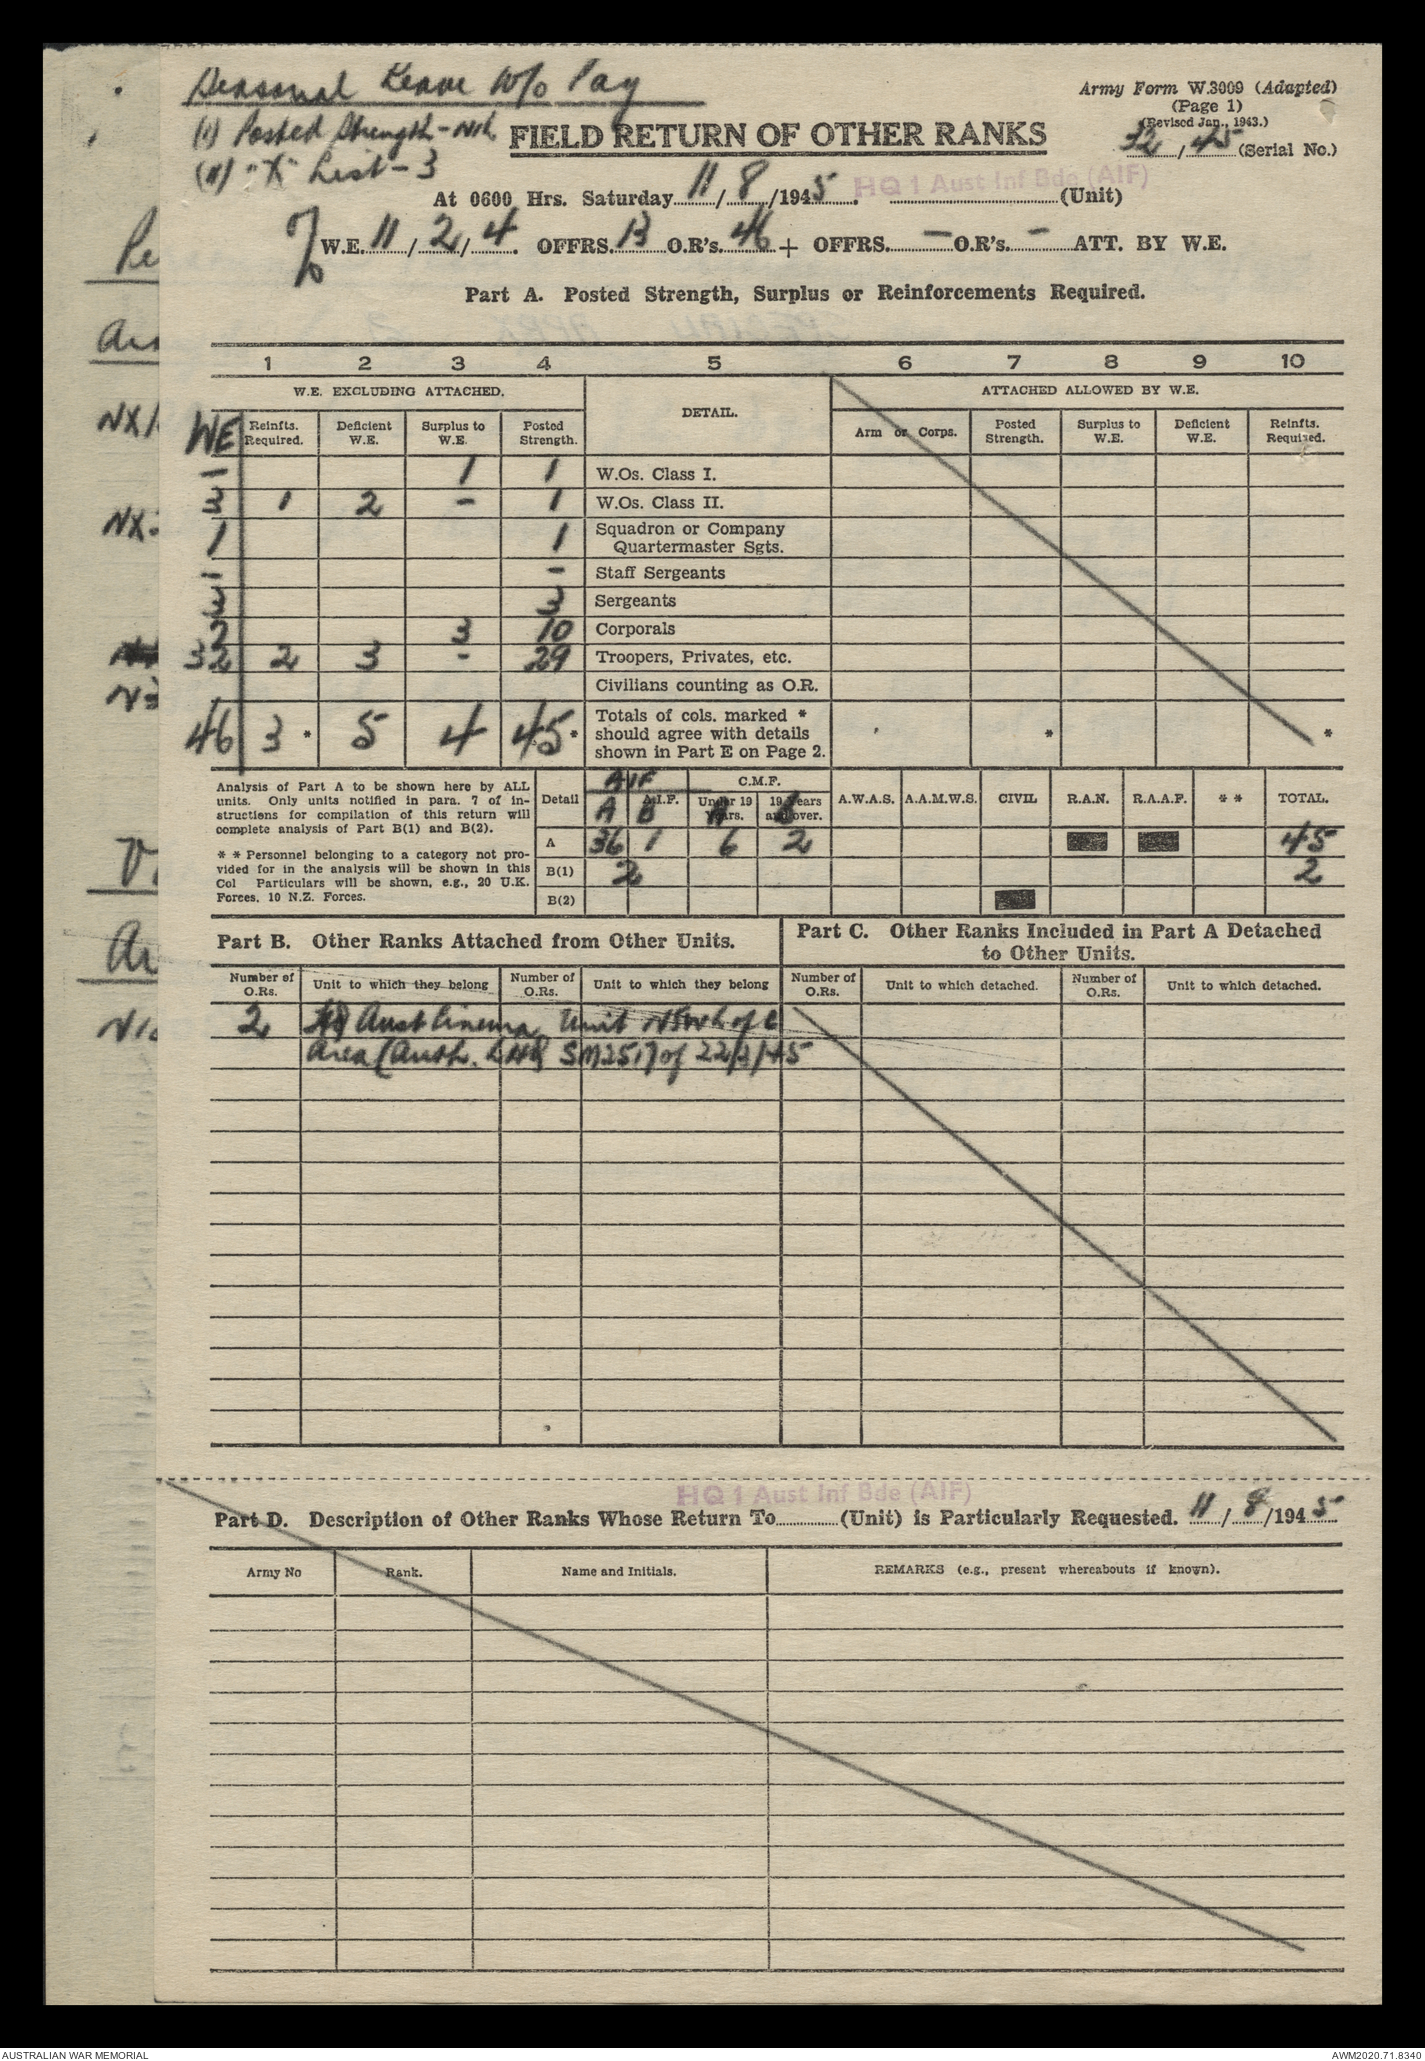 Seasonal Leave W/o Pay
(i) Posted Strength - Nil
(ii) "X" List - 3
Army Form W.3009 (Adapted)
(Page 1)
(Revised Jan., 1943.)
32/45 (Serial No.)
FIELD RETURN OF OTHER RANKS
HQ 1 Aust Inf Bde (AIF)
At 0600 Hrs. Saturday 11/8/1945. (Unit)
W.E. 11/2/4. OFFRS. 13 O.R's. 46 + OFFRS. — O.R's. - ATT. BY W.E.
Part A. Posted Strength, Surplus or Reinforcements Required.
1 2 3 4 5 6 7 8 9 10
W.E. EXCLUDING ATTACHED. DETAIL. ATTACHED ALLOWED BY W.E.
WE Reinfts. Required. Deficient W.E. Surplus to W.E. Posted Strength. Arm or Corps. Posted Strength. Surplus to W.E. Deficient W.E. Reinfts. Required.
- 1 1 W.Os. Class I.
3 1 2 - 1 W.Os. Class II.
1 1 Squadron or Company
Quartermaster Sgts.
- - Staff Sergeants
3 3 Sergeants
7 3 10 Corporals
32 2 3 - 29 Troopers, Privates, etc.
Civilians counting as O.R.
46 3 * 5 4 45 * Totals of cols. marked *
should agree with details * *
shown in Part E on Page 2.
Analysis of Part A to be shown here by ALL
units. Only units notified in para. 7 of in-
structions for compilation of this return will
complete analysis of Part B(1) and B(2).
* * Personnel belonging to a category not pro-
vided for in the analysis will be shown in this
Col Particulars will be shown, e.g., 20 U.K.
Forces, 10 N.Z. Forces.
AIF C.M.F.
Detail A B A.I.F. Under 19 Years. 19 Years and over. A.W.A.S. A.A.M.W.S. CIVIL R.A.N. R.A.A.F. * * TOTAL.
A 36 1 6 2 45
B(1) 2 2
B(2)
Part B. Other Ranks Attached from Other Units.
Part C. Other Ranks Included in Part A Detached
to Other Units.
Number of O.Rs. Unit to which they belong Number of O.Rs. Unit to which they belong Number of O.Rs. Unit to which detached. Number of O.Rs. Unit to which detached.
2 Aust Cinema Unit NSW L of C
Area (Auth. LHQ SM2517 of 22/3/45
HQ 1 Aust Inf Bde (AIF)
Part D. Description of Other Ranks Whose Return To (Unit) is Particularly Requested. 11/8/1945
Army No Rank. Name and Initials. REMARKS (e.g., present whereabouts if known).
AUSTRALIAN WAR MEMORIAL
AWM2020.71.8340